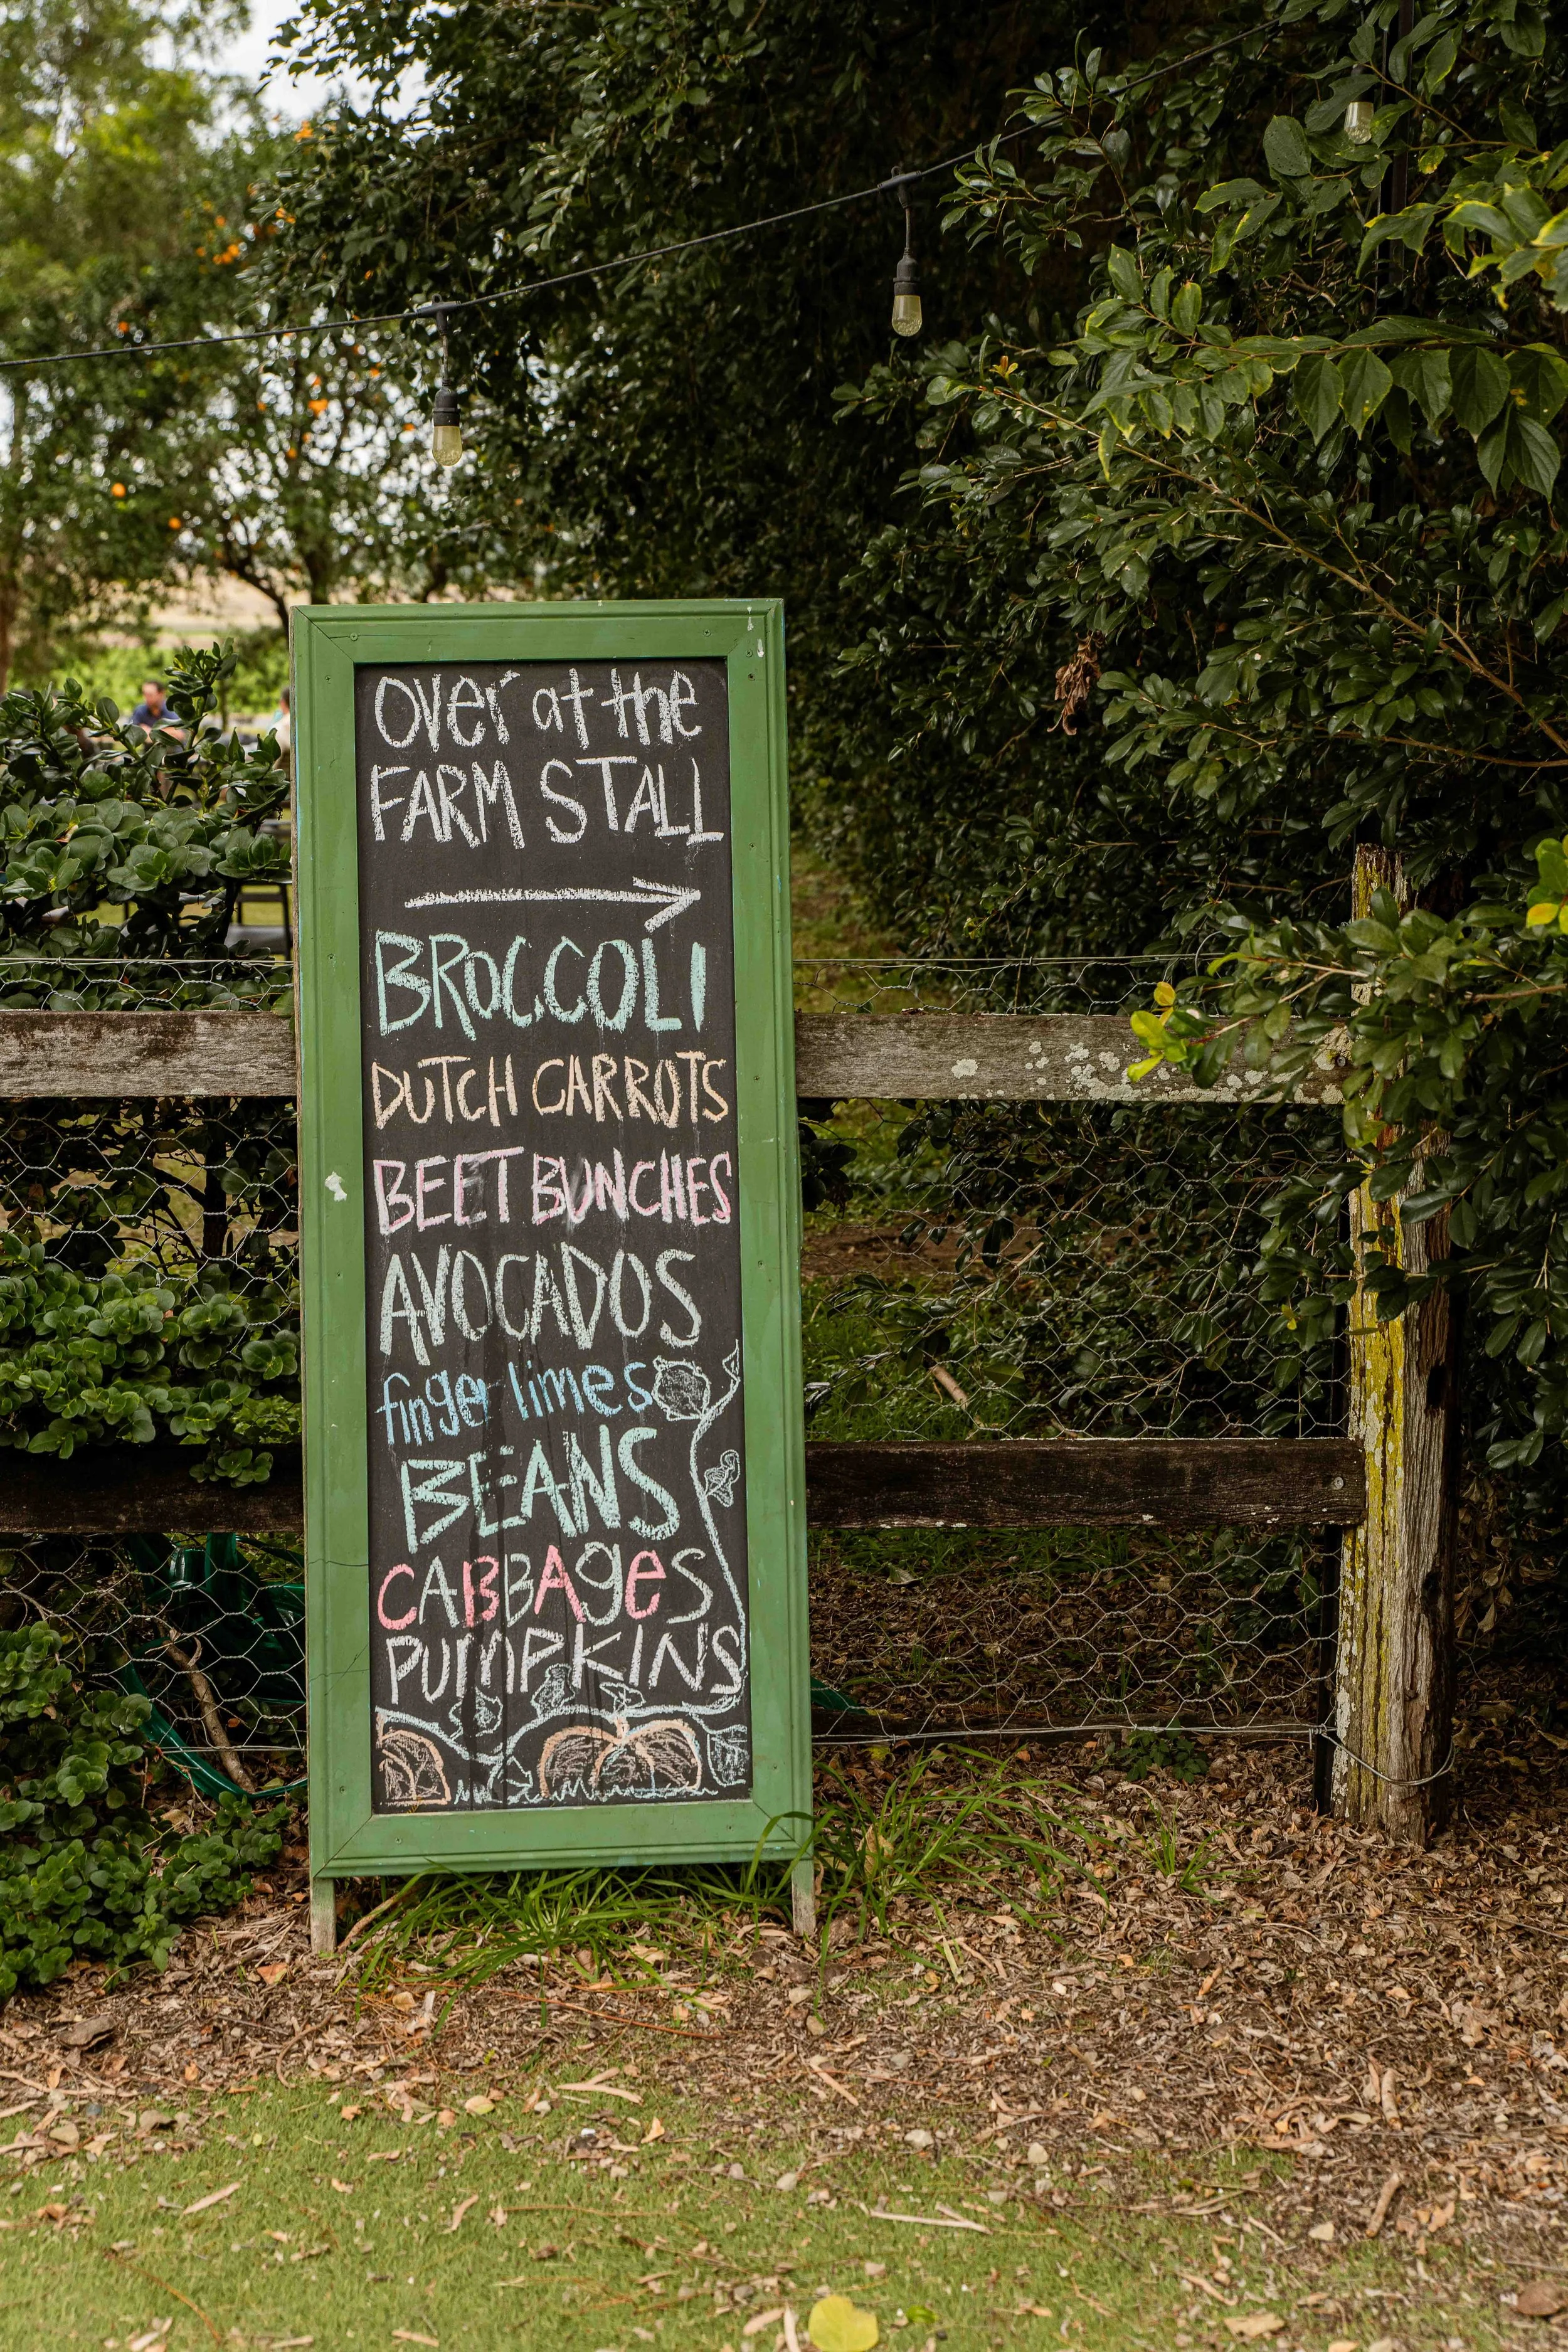 Over at the
FARM STALL
BROCCOLI
DUTCH CARROTS
BEET BUNCHES
AVOCADOS
finger limes
BEANS
CABBAgeS
PUMPKINS